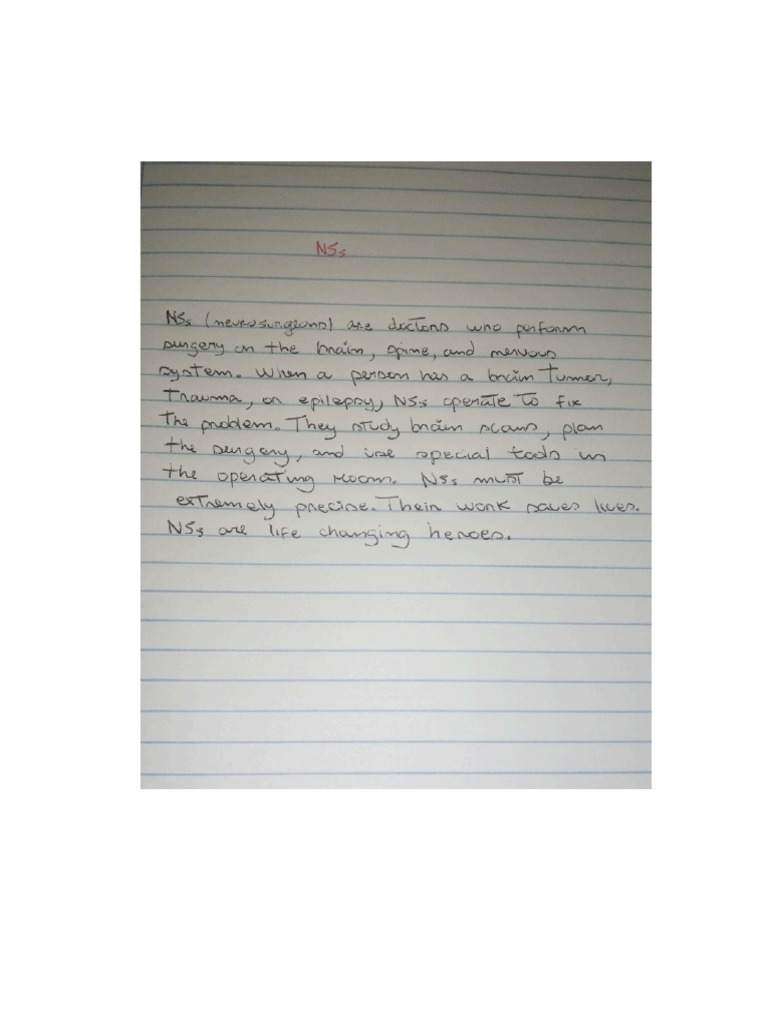 NSs
NSs (neurosurgeons) are doctors who perform
surgery on the brain, spine, and nervous
system. When a person has a brain tumor,
trauma, or epilepsy, NSs operate to fix
the problem. They study brain scans, plan
the surgery, and use special tools in
the operating room. NSs must be
extremely precise. Their work saves lives.
NSs are life changing heroes.